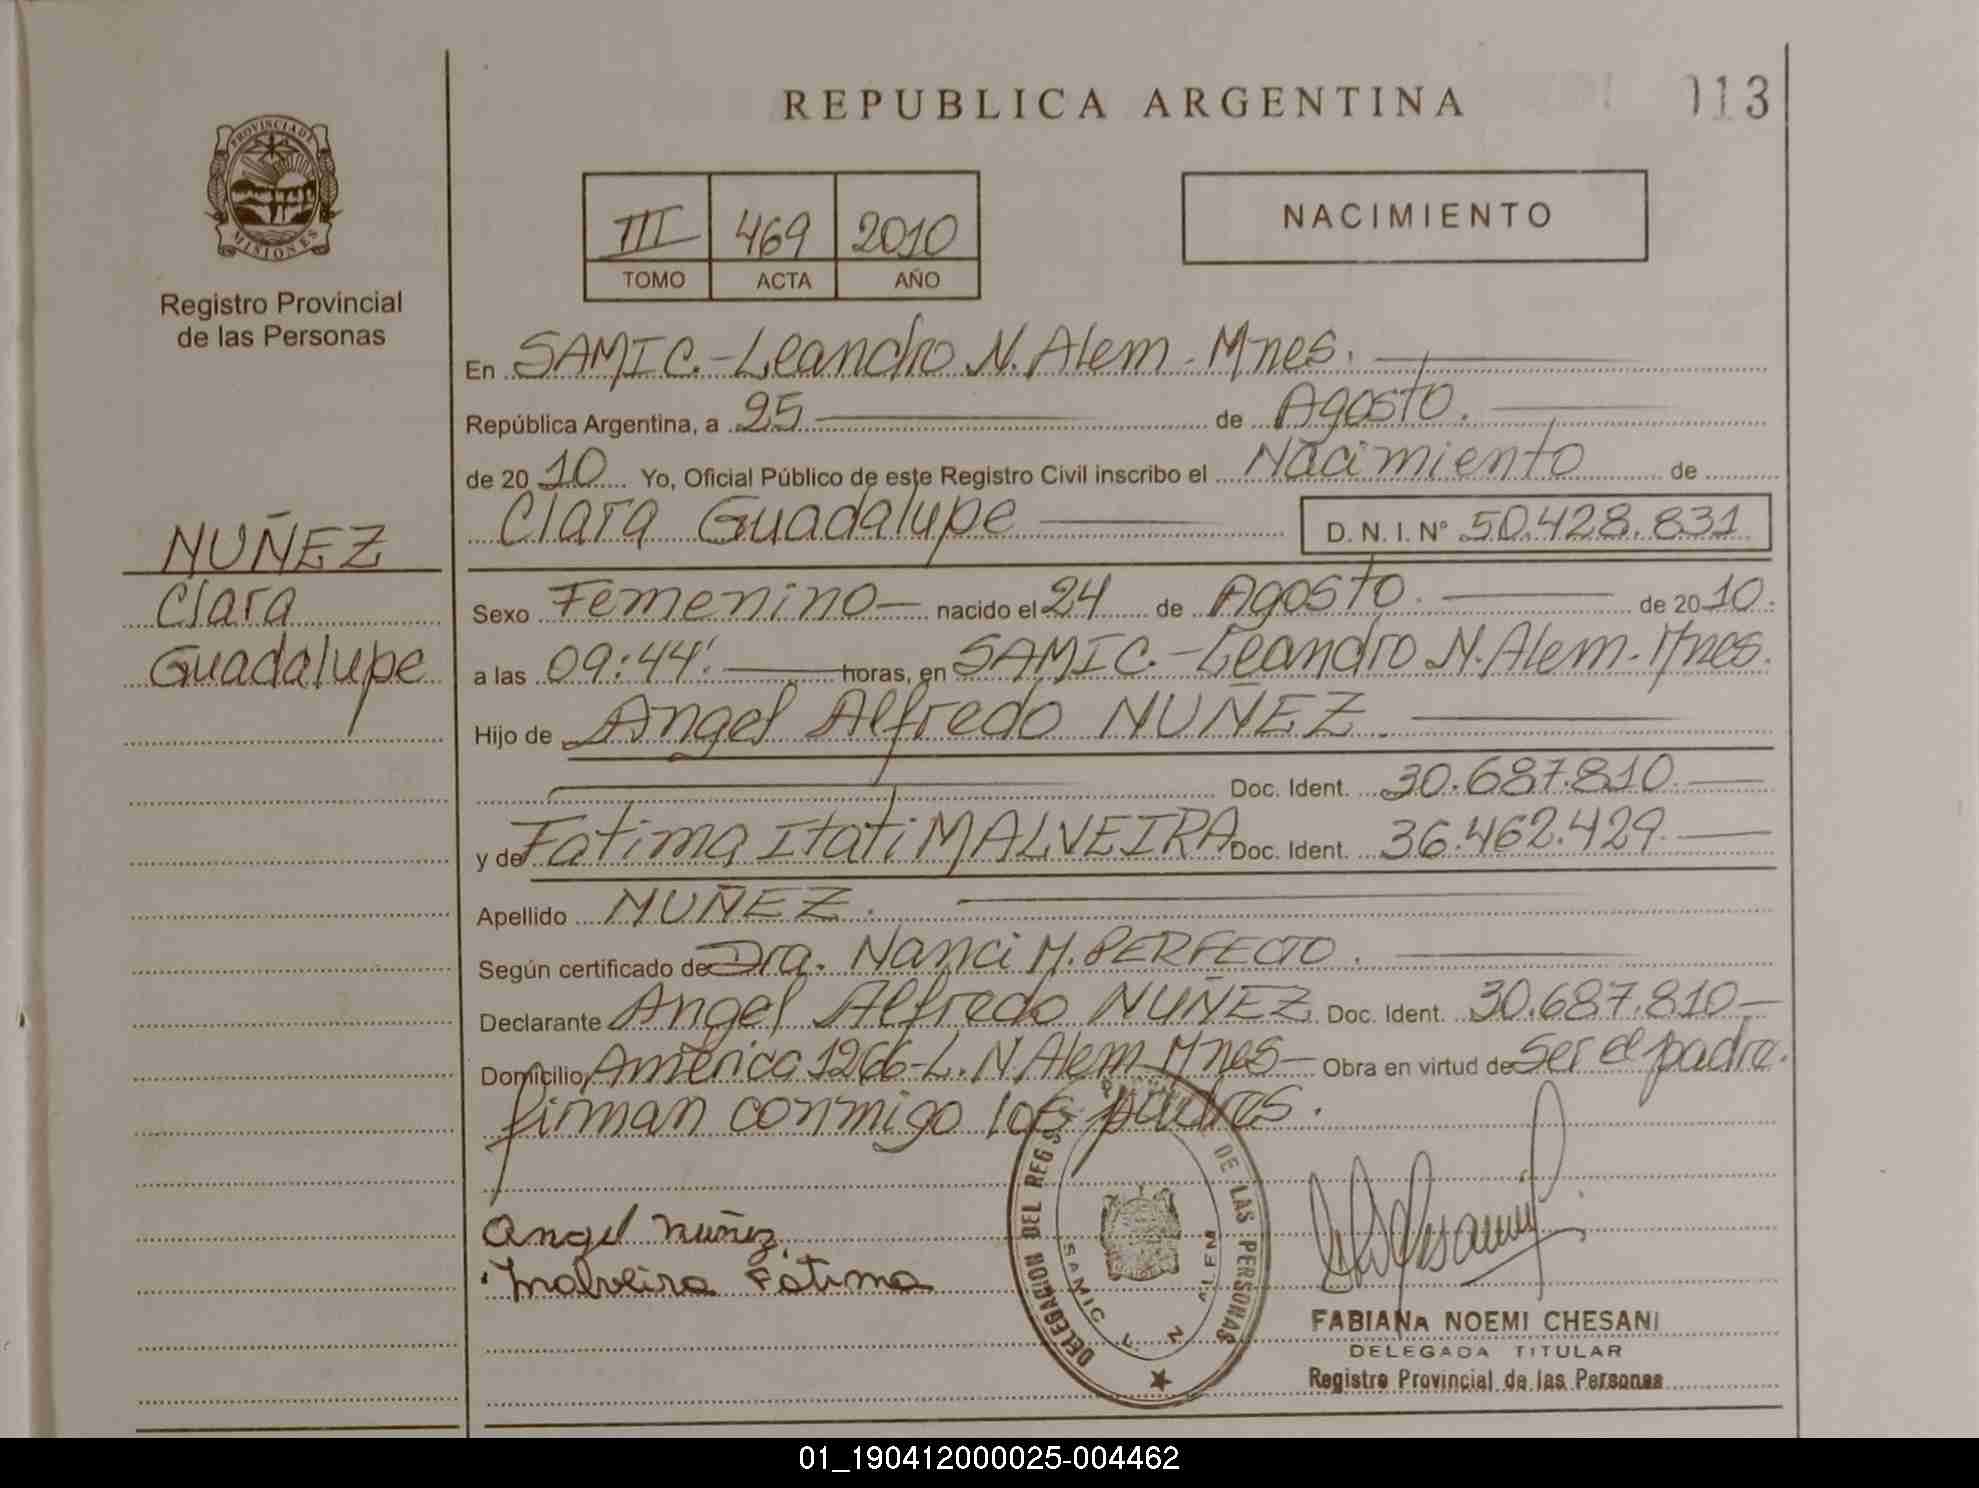 REPUBLICA ARGENTINA
113
PROVINCIA DE
MISIONES
Registro Provincial
de las Personas
III 469 2010
TOMO ACTA AÑO
NACIMIENTO
En SAMIC.-Leandro N. Alem - Mnes.
República Argentina, a 25 de Agosto.
de 20 10 Yo, Oficial Público de este Registro Civil inscribo el Nacimiento de
Clara Guadalupe D. N. I. N° 50.428.831
NUÑEZ
Clara
Guadalupe
Sexo Femenino nacido el 24 de Agosto. de 20 10.
a las 09:44'. horas, en SAMIC.-Leandro N. Alem - Mnes.
Hijo de Angel Alfredo NUÑEZ.
Doc. Ident. 30.687.810.
y de Fatima Itati MALVEIRA Doc. Ident. 36.462.429.
Apellido NUÑEZ.
Según certificado de Dra. Nanci M. PERFECTO.
Declarante Angel Alfredo NUÑEZ Doc. Ident. 30.687.810-
Domicilio América 1266-L. N Alem Mnes- Obra en virtud de Ser el padre.
firman conmigo los padres.
Angel Nuñez.
Malveira Fatima
DELEGACION DEL REG DE LAS PERSONAS
SAMIC L. N. ALEM
FABIANA NOEMI CHESANI
DELEGADA TITULAR
Registro Provincial de las Personas
01_190412000025-004462